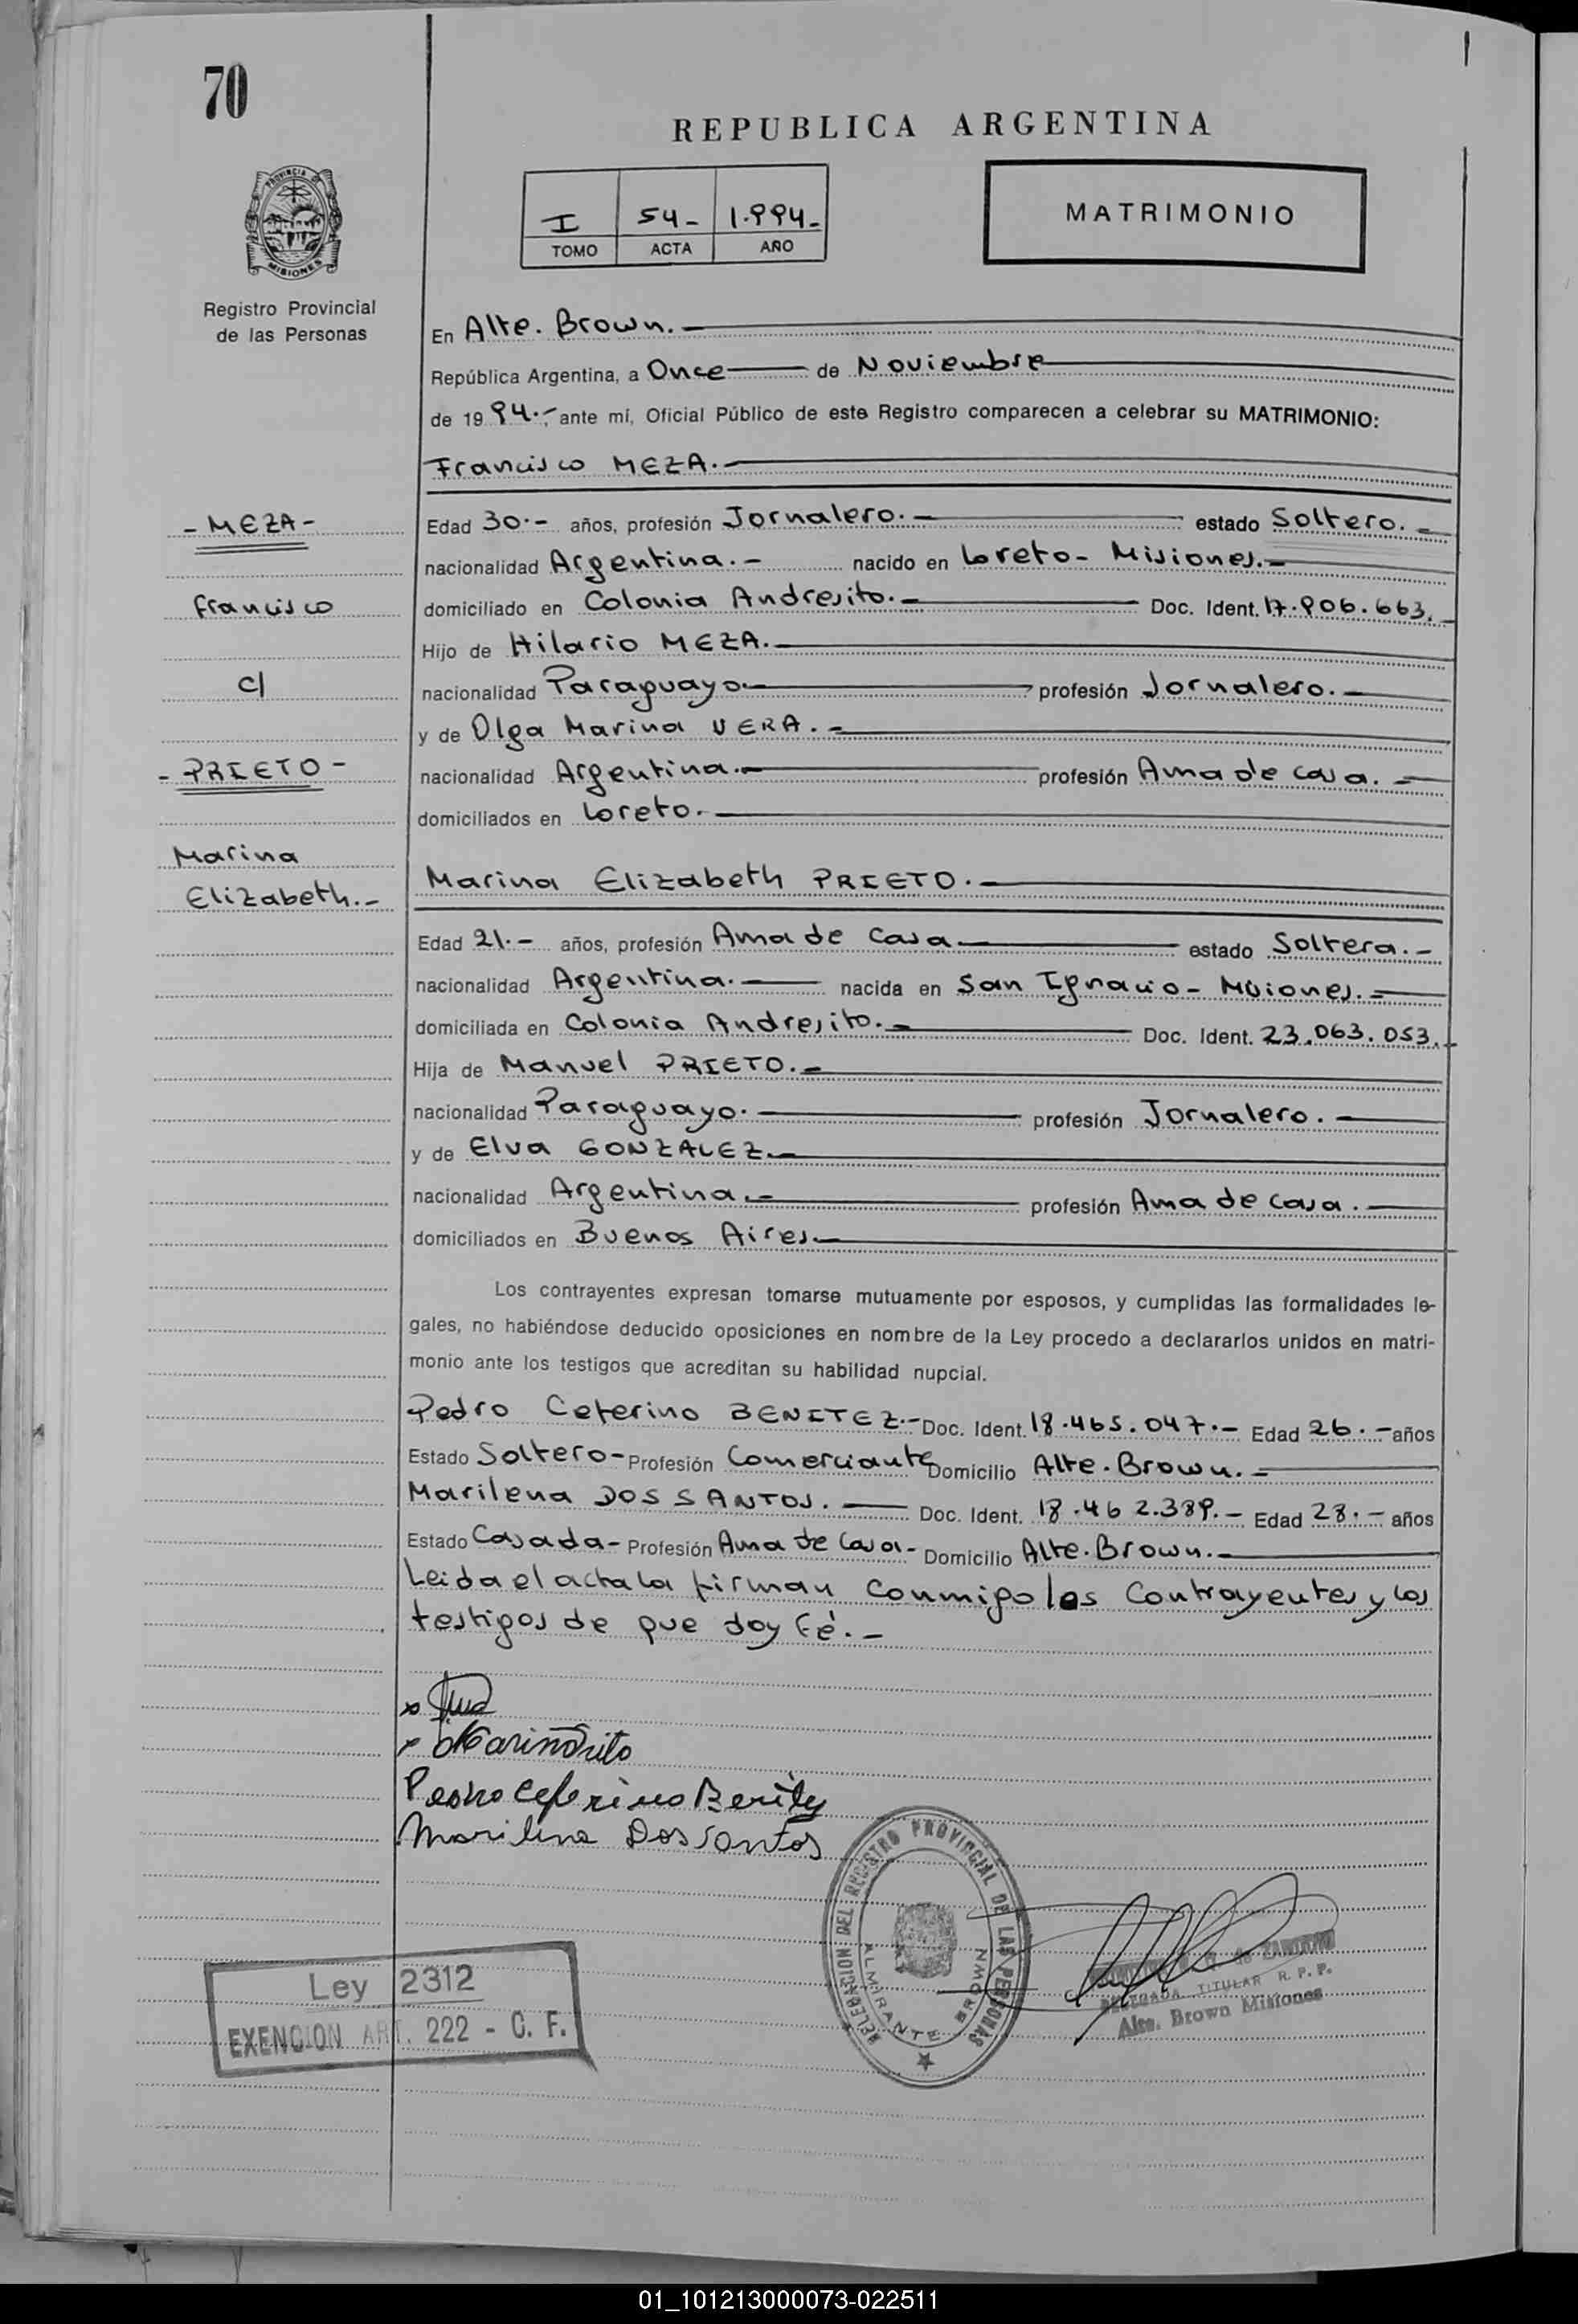 70
REPUBLICA ARGENTINA
PROVINCIA DE
MISIONES
Registro Provincial
de las Personas
I 54- 1.994-
TOMO ACTA AÑO
MATRIMONIO
En Alte. Brown.-
República Argentina, a Once de Noviembre
de 1994.-, ante mí, Oficial Público de este Registro comparecen a celebrar su MATRIMONIO:
Francisco MEZA.-
- MEZA -
Edad 30.- años, profesión Jornalero.- estado Soltero.-
nacionalidad Argentina.- nacido en Loreto- Misiones.-
Francisco
domiciliado en Colonia Andresito.- Doc. Ident. 17.906.663.-
Hijo de Hilario MEZA.-
c/
nacionalidad Paraguayo.- profesión Jornalero.-
y de Olga Marina VERA.-
- PRIETO -
nacionalidad Argentina.- profesión Ama de casa.-
domiciliados en Loreto.-
Marina
Elizabeth.-
Marina Elizabeth PRIETO.-
Edad 21.- años, profesión Ama de Casa.- estado Soltera.-
nacionalidad Argentina.- nacida en San Ignacio- Misiones.-
domiciliada en Colonia Andresito.- Doc. Ident. 23.063.053.-
Hija de Manuel PRIETO.-
nacionalidad Paraguayo.- profesión Jornalero.-
y de Elva GONZALEZ.-
nacionalidad Argentina.- profesión Ama de casa.-
domiciliados en Buenos Aires.-
Los contrayentes expresan tomarse mutuamente por esposos, y cumplidas las formalidades le-
gales, no habiéndose deducido oposiciones en nombre de la Ley procedo a declararlos unidos en matri-
monio ante los testigos que acreditan su habilidad nupcial.
Pedro Ceferino BENITEZ.- Doc. Ident. 18.465.047.- Edad 26.- años
Estado Soltero- Profesión Comerciante Domicilio Alte. Brown.-
Marilena DOS SANTOS.- Doc. Ident. 18.462.389.- Edad 28.- años
Estado Casada- Profesión Ama de Casa- Domicilio Alte. Brown.-
Leida el acta la firman conmigo los Contrayentes y los
testigos de que doy fé.-
Pedro Ceferino Benitez
Marilena Dos Santos
DELEGACION DEL REGISTRO PROVINCIAL DE LAS PERSONAS
ALMIRANTE BROWN
DELEGADA TITULAR R. P. P.
Alte. Brown Misiones
Ley 2312
EXENCION ART. 222 - C. F.
01_101213000073-022511